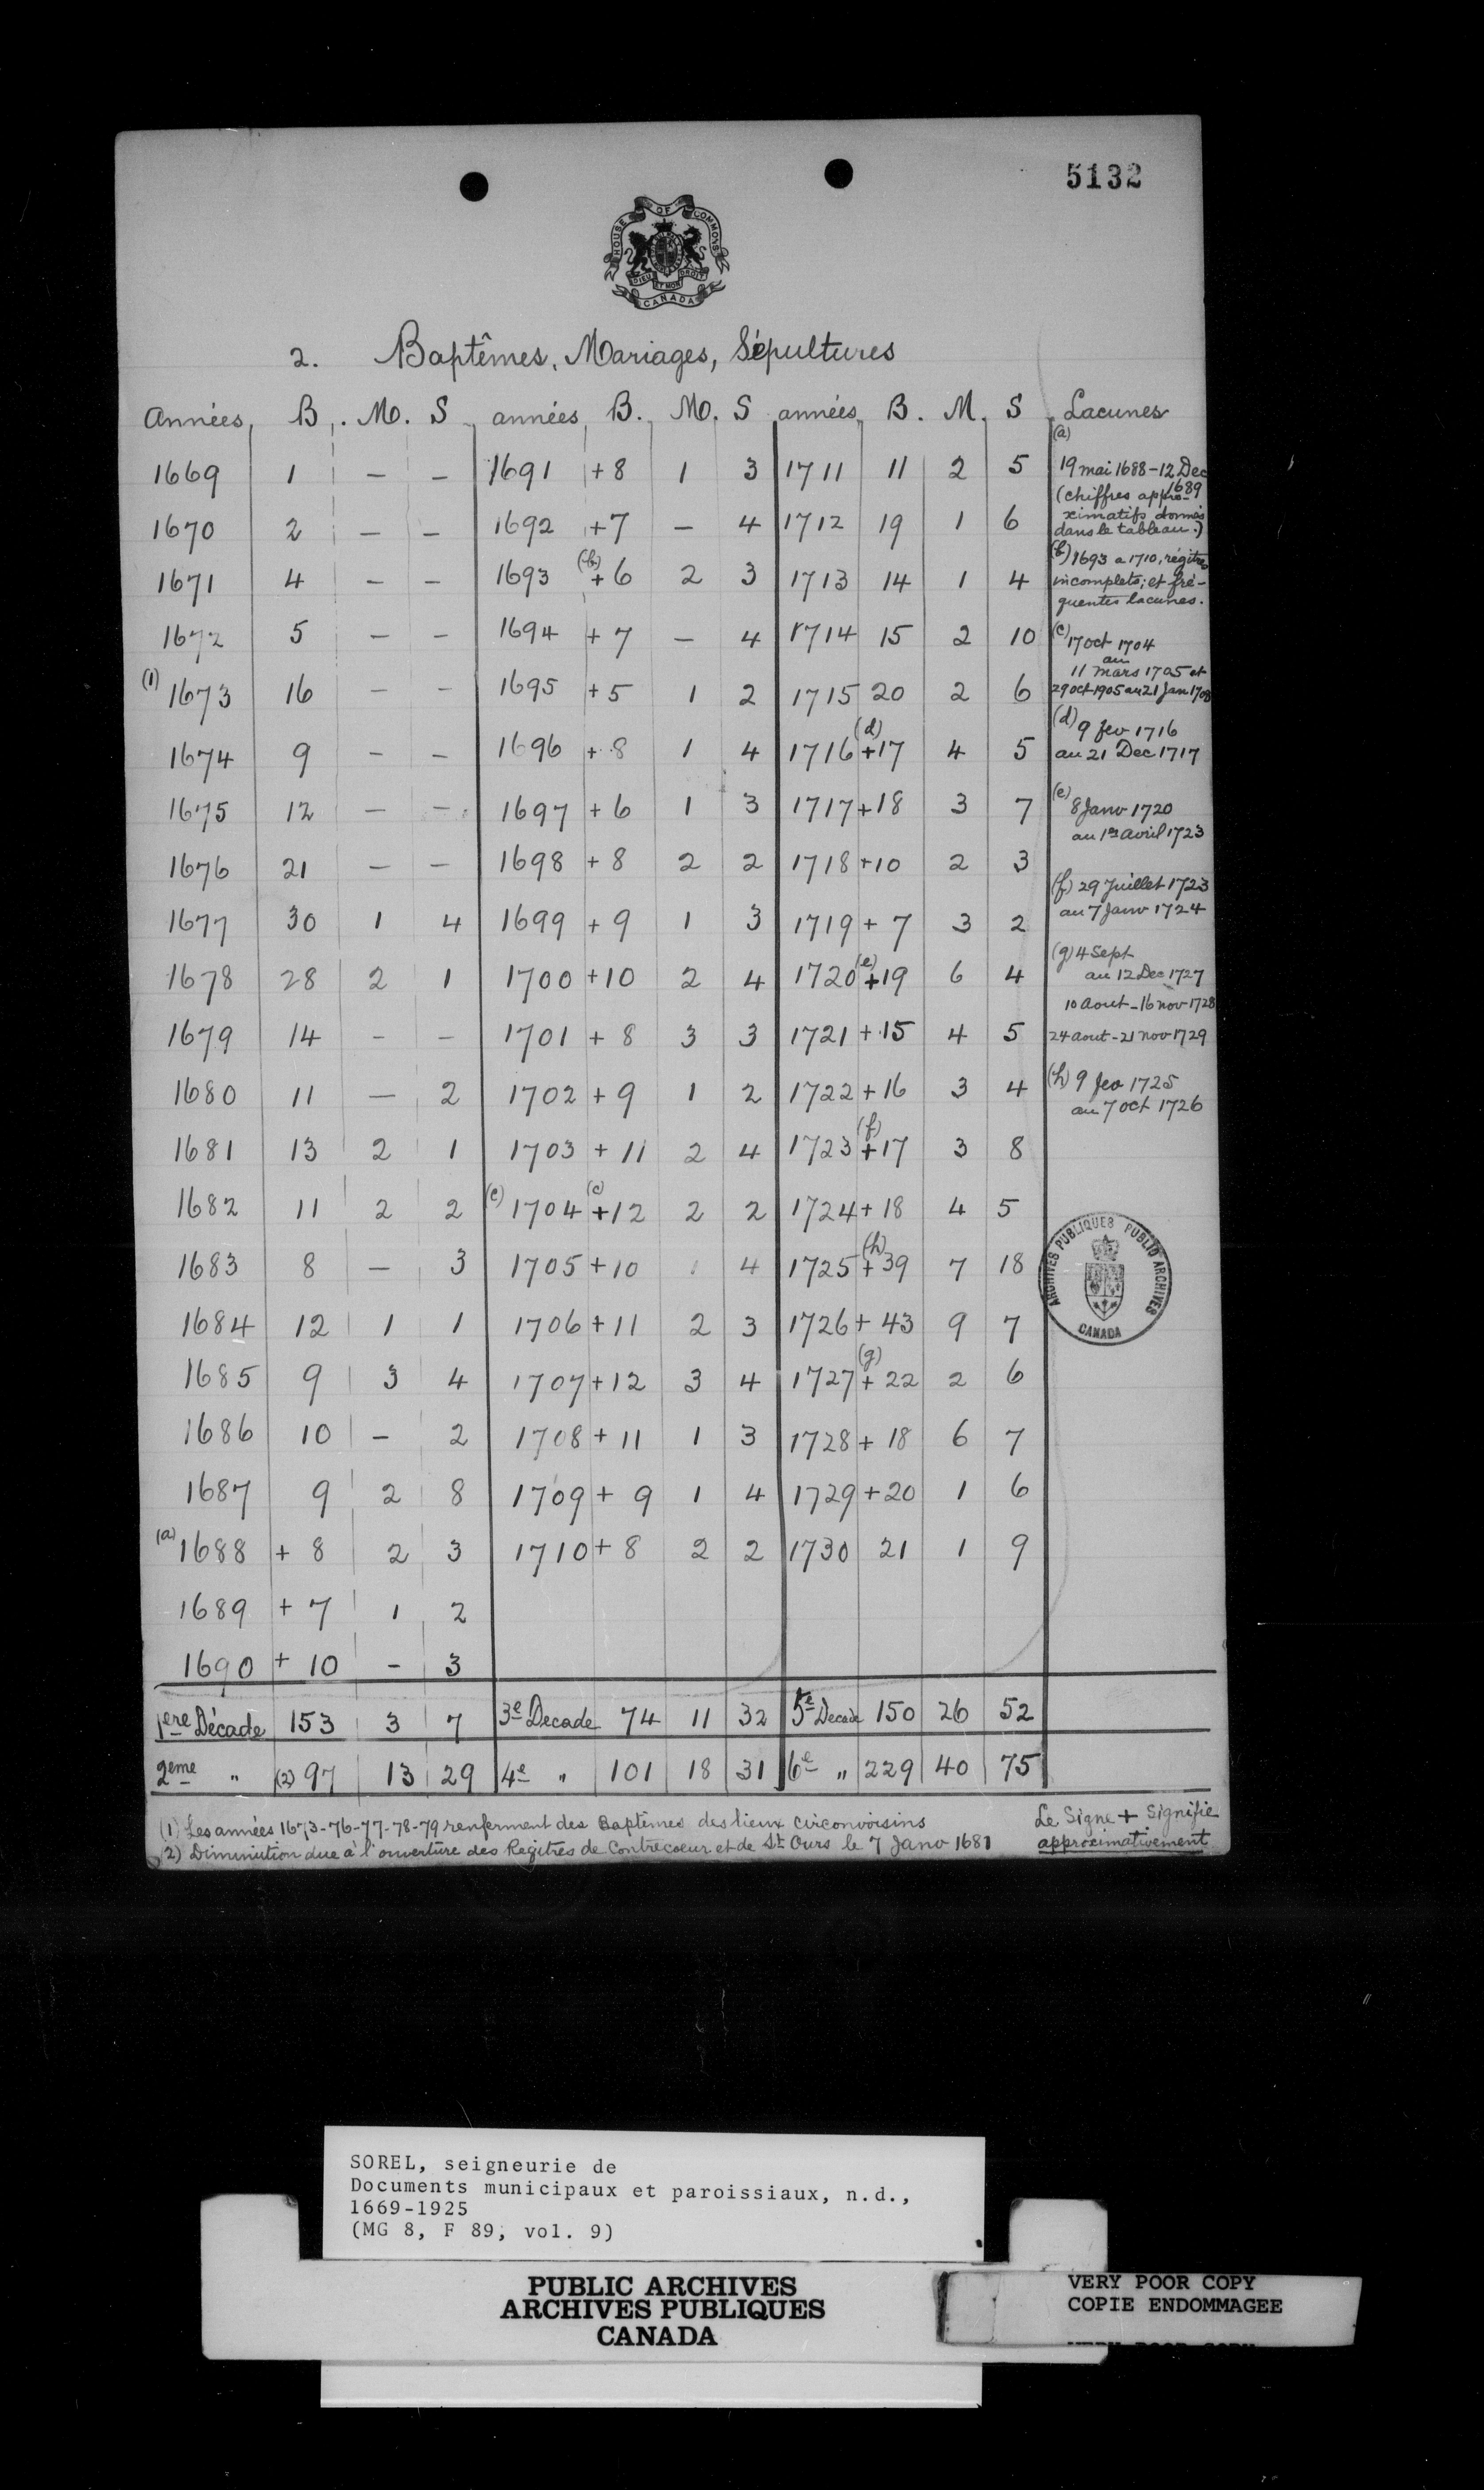 5132
HOUSE OF COMMONS
DIEU ET MON DROIT
CANADA
2. Baptêmes, Mariages, Sépultures
Années B. M. S années B. M. S années B. M. S Lacunes
1669 1 — — 1691 + 8 1 3 1711 11 2 5
1670 2 — — 1692 + 7 — 4 1712 19 1 6
1671 4 — — 1693 (b) + 6 2 3 1713 14 1 4
1672 5 — — 1694 + 7 — 4 1714 15 2 10
(1) 1673 16 — — 1695 + 5 1 2 1715 20 2 6
1674 9 — — 1696 + 8 1 4 1716 (d) + 17 4 5
1675 12 — — 1697 + 6 1 3 1717 + 18 3 7
1676 21 — — 1698 + 8 2 2 1718 + 10 2 3
1677 30 1 4 1699 + 9 1 3 1719 + 7 3 2
1678 28 2 1 1700 + 10 2 4 1720 (e) + 19 6 4
1679 14 — — 1701 + 8 3 3 1721 + 15 4 5
1680 11 — 2 1702 + 9 1 2 1722 + 16 3 4
1681 13 2 1 1703 + 11 2 4 1723 (f) + 17 3 8
1682 11 2 2 (c) 1704 (c) + 12 2 2 1724 + 18 4 5
1683 8 — 3 1705 + 10 1 4 1725 (h) + 39 7 18
1684 12 1 1 1706 + 11 2 3 1726 + 43 9 7
1685 9 3 4 1707 + 12 3 4 1727 (g) + 22 2 6
1686 10 — 2 1708 + 11 1 3 1728 + 18 6 7
1687 9 2 8 1709 + 9 1 4 1729 + 20 1 6
(a) 1688 + 8 2 3 1710 + 8 2 2 1730 21 1 9
1689 + 7 1 2
1690 + 10 — 3
1ere Décade 153 3 7 3e Decade 74 11 32 5e Decade 150 26 52
2eme " (2) 97 13 29 4e " 101 18 31 6e " 229 40 75
(a)
19 mai 1688 - 12 Dec
1689
(chiffres appro-
ximatifs donnés
dans le tableau.)
(b) 1693 a 1710, régitres
incomplets; et fré-
quentes lacunes.
(c) 17 oct 1704
au
11 mars 1705 et
29 oct 1905 au 21 Jan 1708
(d) 9 fev 1716
au 21 Dec 1717
(e) 8 Janv 1720
au 1er avril 1723
(f) 29 Juillet 1723
au 7 Janv 1724
(g) 4 Sept
au 12 Dec 1727
10 Aout - 16 nov 1728
24 aout - 21 nov 1729
(h) 9 fev 1725
au 7 oct 1726
ARCHIVES PUBLIQUES PUBLIC ARCHIVES
CANADA
(1) Les années 1673-76-77-78-79 renferment des Baptêmes des lieux circonvoisins
(2) Diminution due à l'ouverture des Regitres de Contrecoeur et de St Ours le 7 Janv 1681
Le Signe + Signifie
approximativement
SOREL, seigneurie de
Documents municipaux et paroissiaux, n.d.,
1669-1925
(MG 8, F 89, vol. 9)
PUBLIC ARCHIVES
ARCHIVES PUBLIQUES
CANADA
VERY POOR COPY
COPIE ENDOMMAGEE
VERY POOR COPY